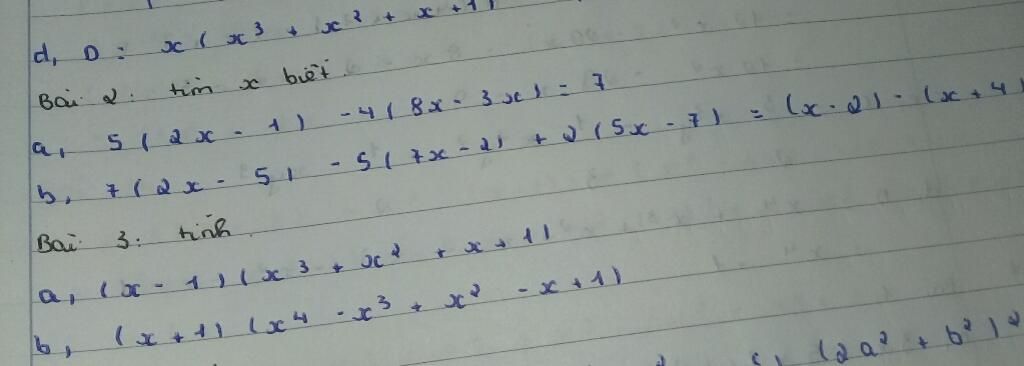 d, D = x ( x³ + x² + x + 1)
Bài 2: tìm x biết.
a, 5 ( 2x - 1 ) - 4 ( 8x - 3x ) = 7
b, 7 ( 2x - 5 ) - 5 ( 7x - 2 ) + 2 ( 5x - 7 ) = (x - 2) - (x + 4)
Bài 3: tính.
a, (x - 1 ) ( x³ + x² + x + 1)
b, (x + 1) (x⁴ - x³ + x² - x + 1)
(2a² + b²)²